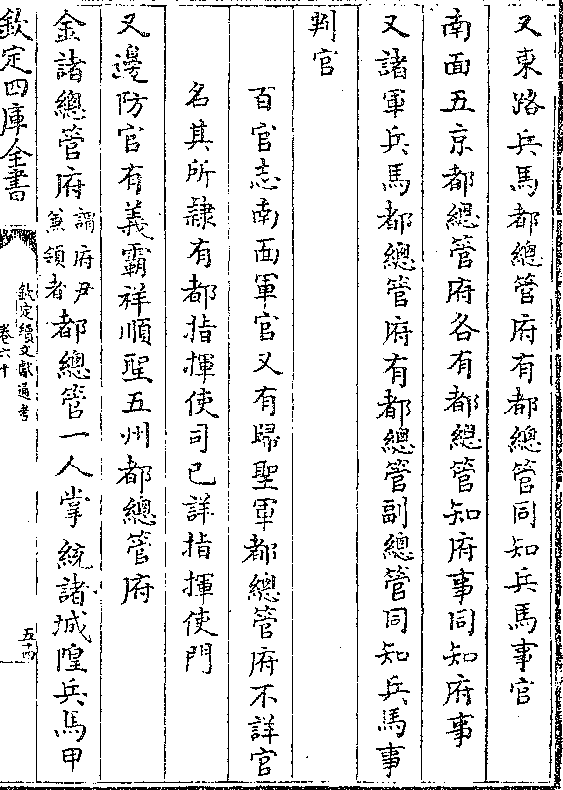 又東路兵馬都總管府有都總管同知兵馬事官
南面五京都總管府各有都總管知府事同知府事
又諸軍兵馬都總管府有都總管副總管同知兵馬事
判官
百官志南面軍官又有歸聖軍都總管府不詳官
名其所隷有都指揮使司已詳指揮使門
又邊防官有義霸祥順聖五州都總管府
金諸總管府謂府尹兼領者都總管一人掌統諸城隍兵馬甲
欽定四庫全書
欽定續文獻通考
卷六十
五十四